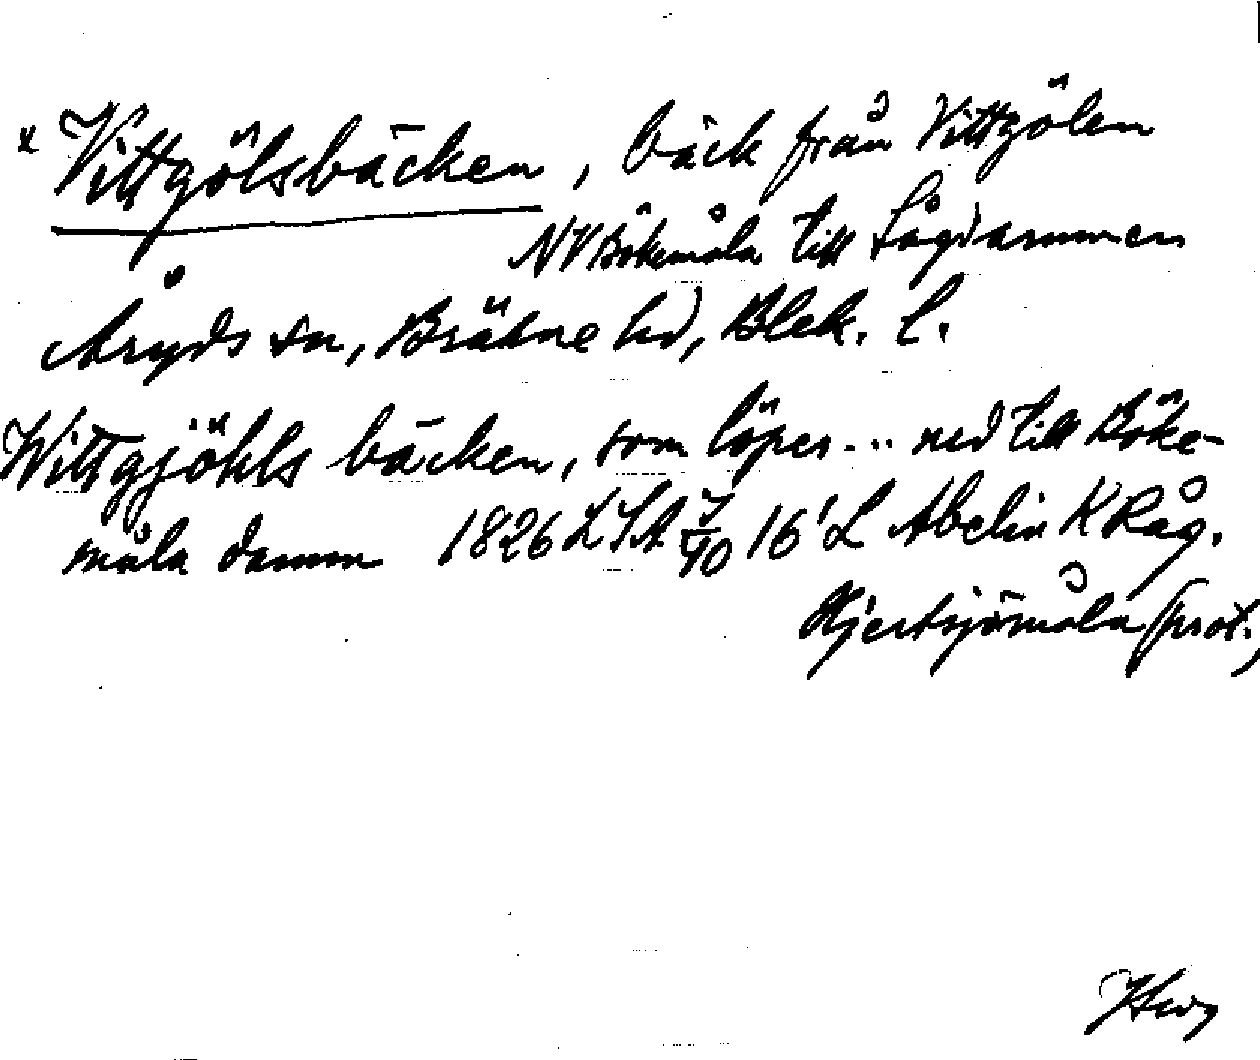 x Vittgölsbäcken, bäck från Vittgölen
NV Bökemåla till Sågdammen
Åryds sn, Bräkne hd, Blek. l.
Wittgjöhls bäcken, som löper... ned till Böke-
måla damm 1826 LSA 7/40 16' L Abelin K Råg.
Hjertsjömåla (prot.)